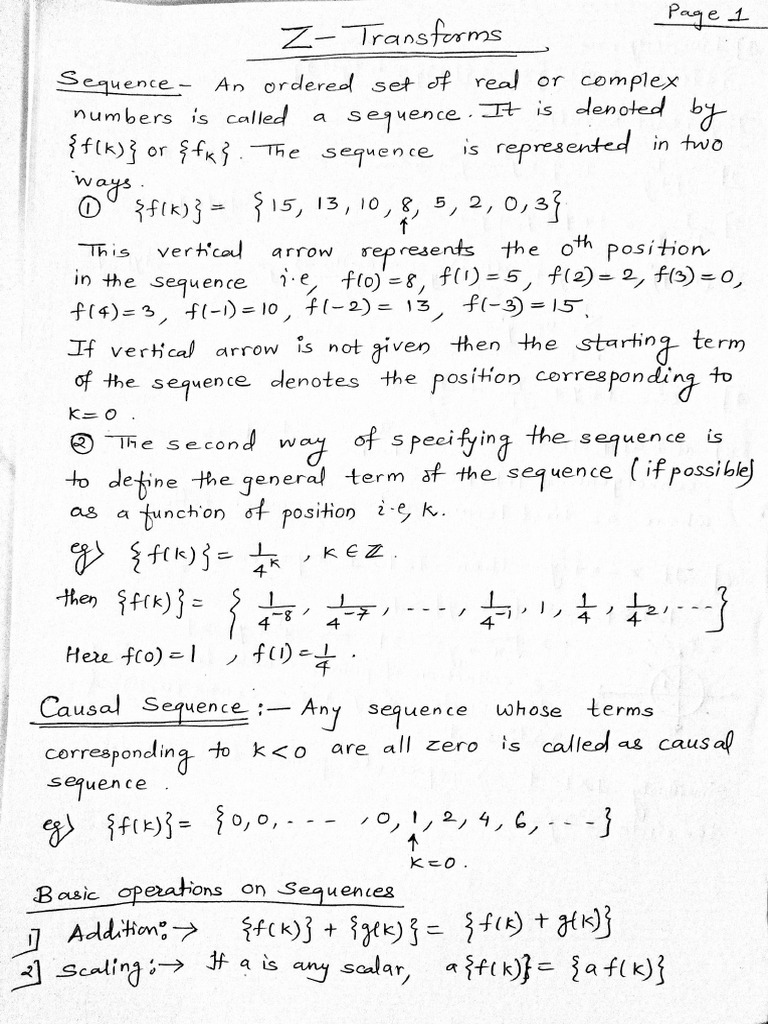 Page 1
Z-Transforms
Sequence - An ordered set of real or complex
numbers is called a sequence. It is denoted by
{f(k)} or {fk}. The sequence is represented in two
ways.
① {f(k)} = {15, 13, 10, 8, 5, 2, 0, 3}
↑
This vertical arrow represents the 0th position
in the sequence i.e, f(0)=8, f(1)=5, f(2)=2, f(3)=0,
f(4)=3, f(-1)=10, f(-2)=13, f(-3)=15.
If vertical arrow is not given then the starting term
of the sequence denotes the position corresponding to
k=0.
② The second way of specifying the sequence is
to define the general term of the sequence (if possible)
as a function of position i.e, k.
eg) {f(k)} = 1/4^k, k ∈ Z.
then {f(k)} = { 1/4^-8, 1/4^-7, ---, 1/4^-1, 1, 1/4, 1/4^2, --- }
Here f(0)=1, f(1)=1/4.
Causal Sequence :- Any sequence whose terms
corresponding to k<0 are all zero is called as causal
sequence.
eg) {f(k)} = {0,0, --- ,0, 1, 2, 4, 6, ---}
↑
k=0.
Basic operations on Sequences
1] Addition:→ {f(k)} + {g(k)} = {f(k) + g(k)}
2] Scaling:→ If a is any scalar, a{f(k)} = {a f(k)}